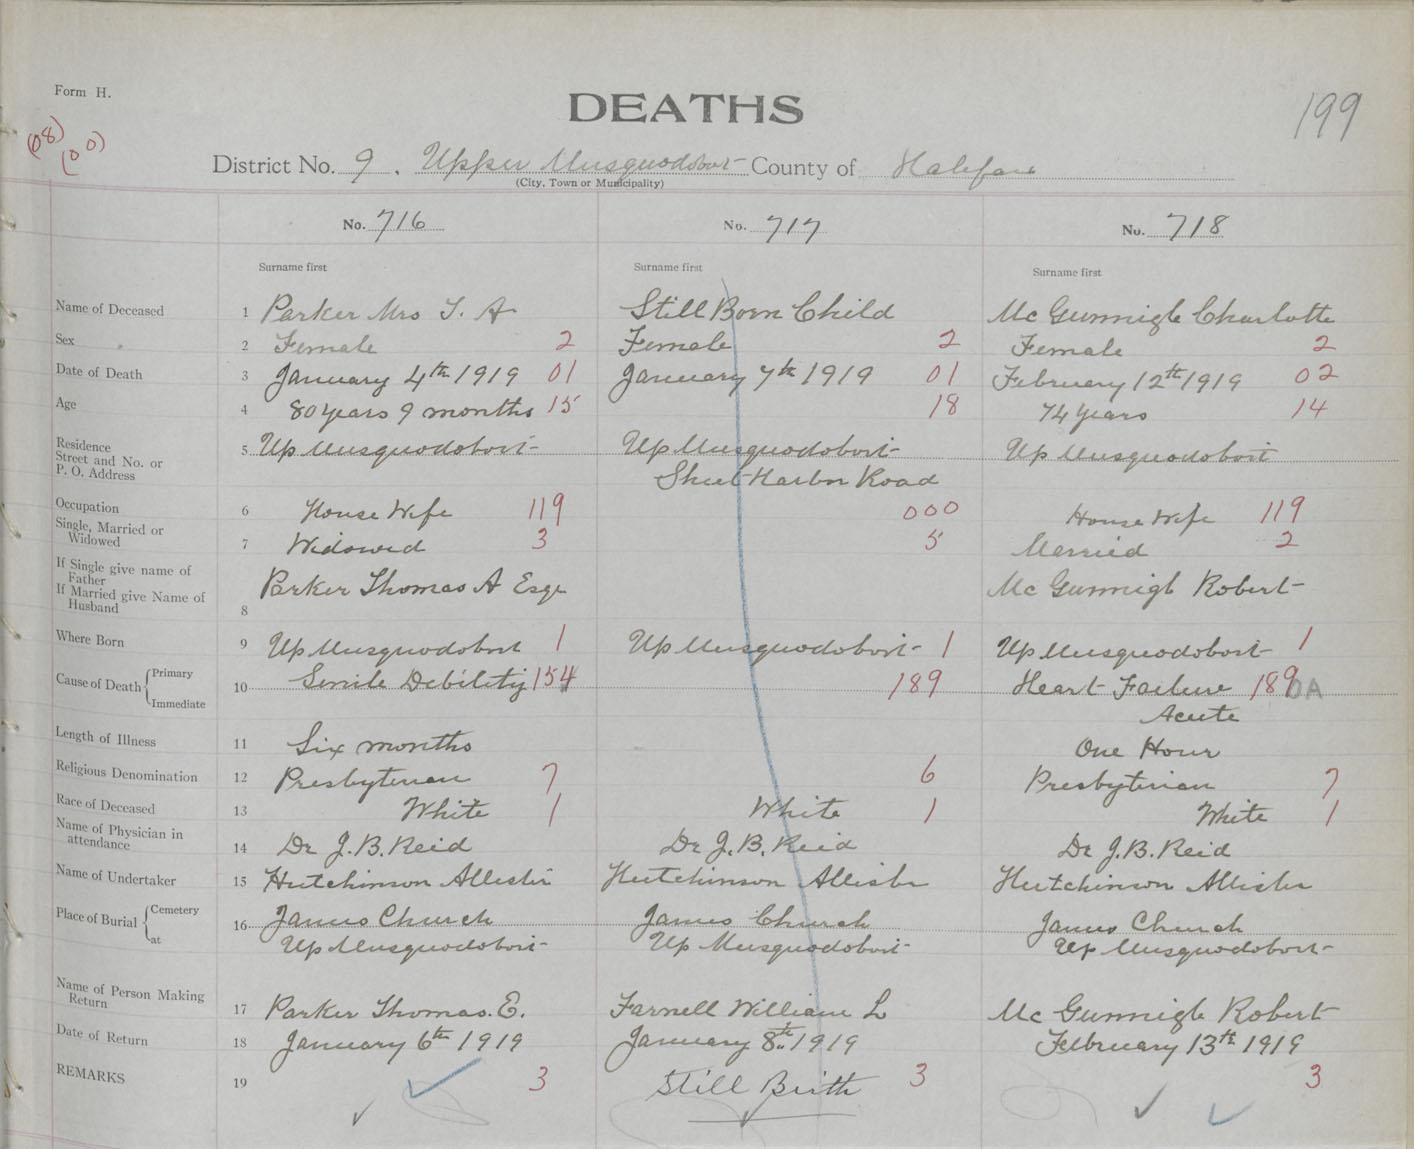 Form H.
DEATHS
199
(08)
(00)
District No. 9. Upper Musquodoboit County of Halifax
(City, Town or Municipality)
No. 716 No. 717 No. 718
Surname first Surname first Surname first
Name of Deceased 1 Parker Mrs T. A Still Born Child Mc Gunnigle Charlotte
Sex 2 Female 2 Female 2 Female 2
Date of Death 3 January 4th 1919 01 January 7th 1919 01 February 12th 1919 02
Age 4 80 years 9 months 15 18 74 years 14
Residence
Street and No. or
P. O. Address
5 Up Musquodoboit Up Musquodoboit Up Musquodoboit
Sheet Harbor Road
Occupation 6 House Wife 119 000 House Wife 119
Single, Married or
Widowed 7 Widowed 3 5 Married 2
If Single give name of
Father
If Married give Name of
Husband
8 Parker Thomas A Esqr Mc Gunnigle Robert
Where Born 9 Up Musquodoboit 1 Up Musquodoboit 1 Up Musquodoboit 1
Cause of Death Primary
Immediate
10 Senile Debility 154 189 Heart Failure 189 0A
Acute
Length of Illness 11 Six months One Hour
Religious Denomination 12 Presbyterian 7 6 Presbyterian 7
Race of Deceased 13 White 1 White 1 White 1
Name of Physician in
attendance 14 Dr J. B. Reid Dr J. B. Reid Dr J. B. Reid
Name of Undertaker 15 Hutchinson Allister Hutchinson Allister Hutchinson Allister
Place of Burial Cemetery
at
16 James Church James Church James Church
Up Musquodoboit Up Musquodoboit Up Musquodoboit
Name of Person Making
Return 17 Parker Thomas. E. Farnell William L Mc Gunnigle Robert
Date of Return 18 January 6th 1919 January 8th 1919 February 13th 1919
REMARKS 19 3 Still Birth 3 3